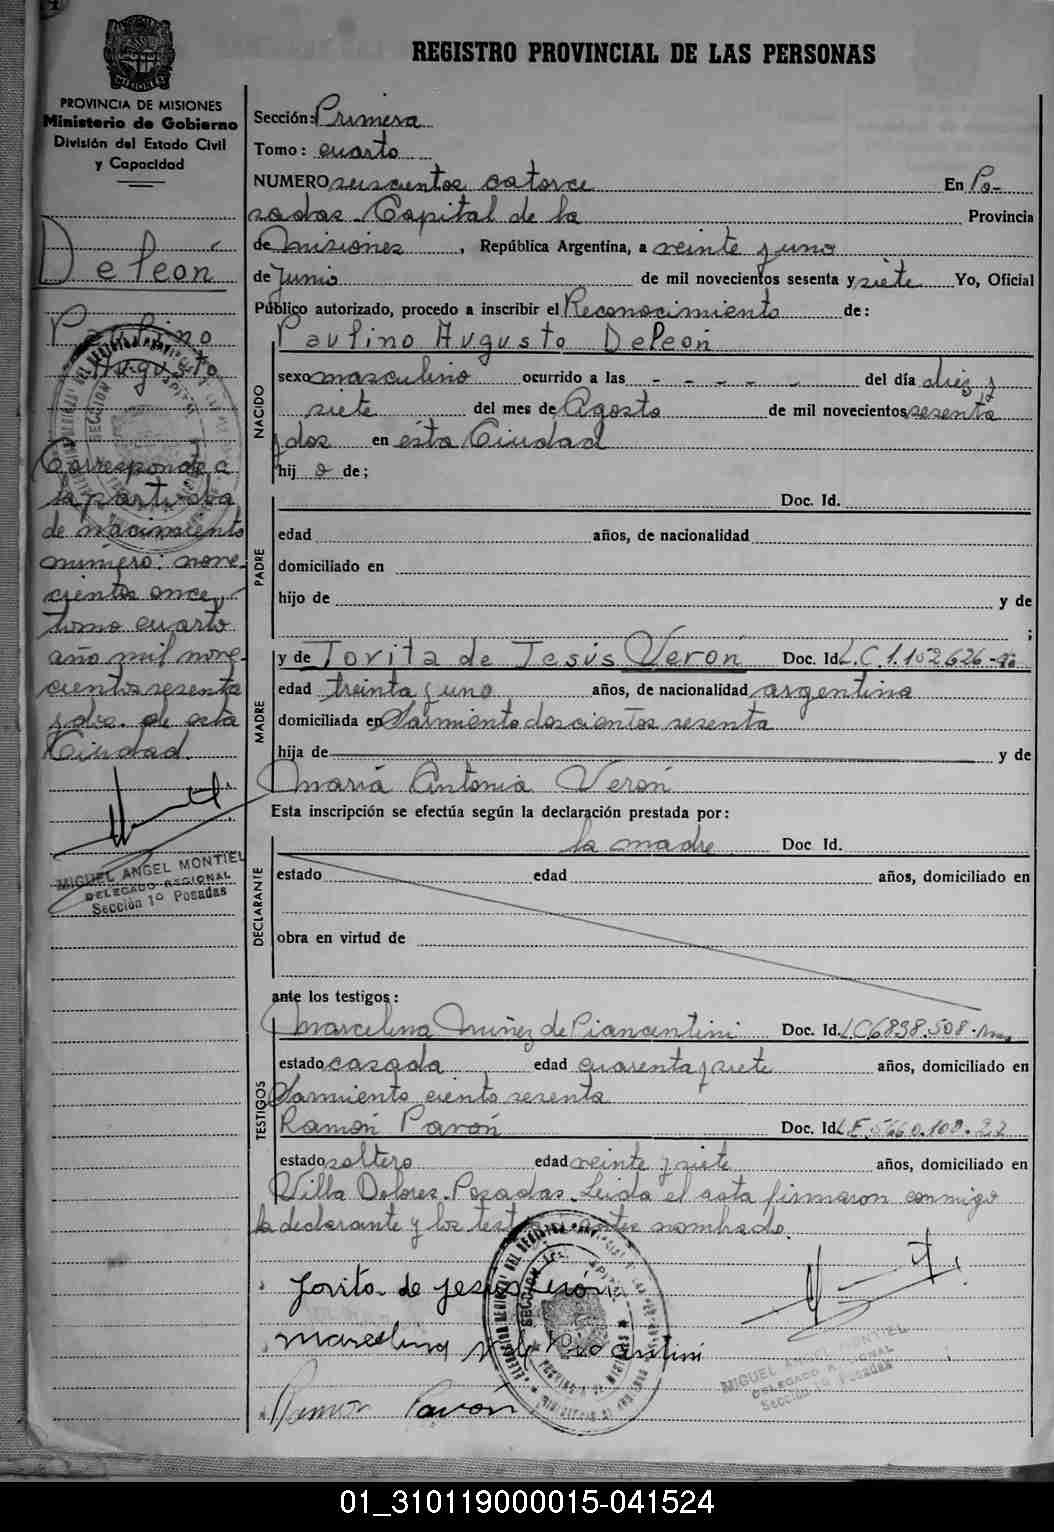 REGISTRO PROVINCIAL DE LAS PERSONAS
PROVINCIA DE MISIONES
Ministerio de Gobierno
División del Estado Civil
y Capacidad
Deleón
Paulino
Augusto
Corresponde a
la partida
de nacimiento
número: nove-
cientos once,
tomo cuarto
año mil nove-
cientos sesenta
y dos. de esta
Ciudad.
MIGUEL ANGEL MONTIEL
DELEGADO REGIONAL
Sección 1º Posadas
Sección: Primera
Tomo: cuarto
NUMERO seiscientos catorce En Po-
sadas. Capital de la Provincia
de Misiones, República Argentina, a veinte y uno
de Junio de mil novecientos sesenta y siete Yo, Oficial
Público autorizado, procedo a inscribir el Reconocimiento de:
Paulino Augusto Deleón
NACIDO
sexo masculino ocurrido a las - - - - - del día diez y
siete del mes de Agosto de mil novecientos sesenta
y dos en esta Ciudad
hijo de;
PADRE
Doc. Id.
edad años, de nacionalidad
domiciliado en
hijo de y de
;
MADRE
y de Jovita de Jesús Verón Doc. Id. L.C 1.152.626
edad treinta y uno años, de nacionalidad argentina
domiciliada en Sarmiento doscientos sesenta
hija de y de
María Antonia Verón
Esta inscripción se efectúa según la declaración prestada por:
la madre Doc. Id.
DECLARANTE
estado edad años, domiciliado en
obra en virtud de
ante los testigos:
TESTIGOS
Marcelina Nuñez de Piancentini Doc. Id. LC6838.508
estado casada edad cuarenta y siete años, domiciliado en
Sarmiento ciento sesenta
Ramón Pavón Doc. Id. L.E. 5660.109
estado soltero edad veinte y siete años, domiciliado en
Villa Dolores. Posadas. Leida el acta firmaron conmigo
la declarante y los testigos antes nombrado.
Jovita de Jesus Verón
Marcelina N de Piancentini
Ramon Pavón
MIGUEL ANGEL MONTIEL
DELEGADO REGIONAL
Sección 1º Posadas
01_310119000015-041524